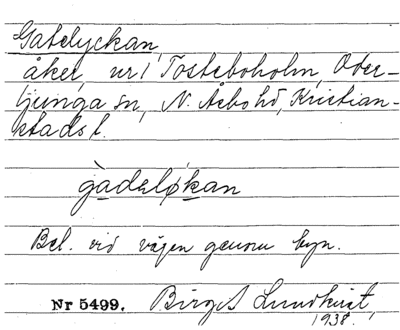 Gatelyckan,
åker, nr 1 Tosteboholm, Oder-
ljunga sn, N. Åsbo hd, Kristian-
stads l.
gàdeløkan
Bel. vid vägen genom byn.
Nr 5499. Birgit Lundkvist,
1938.